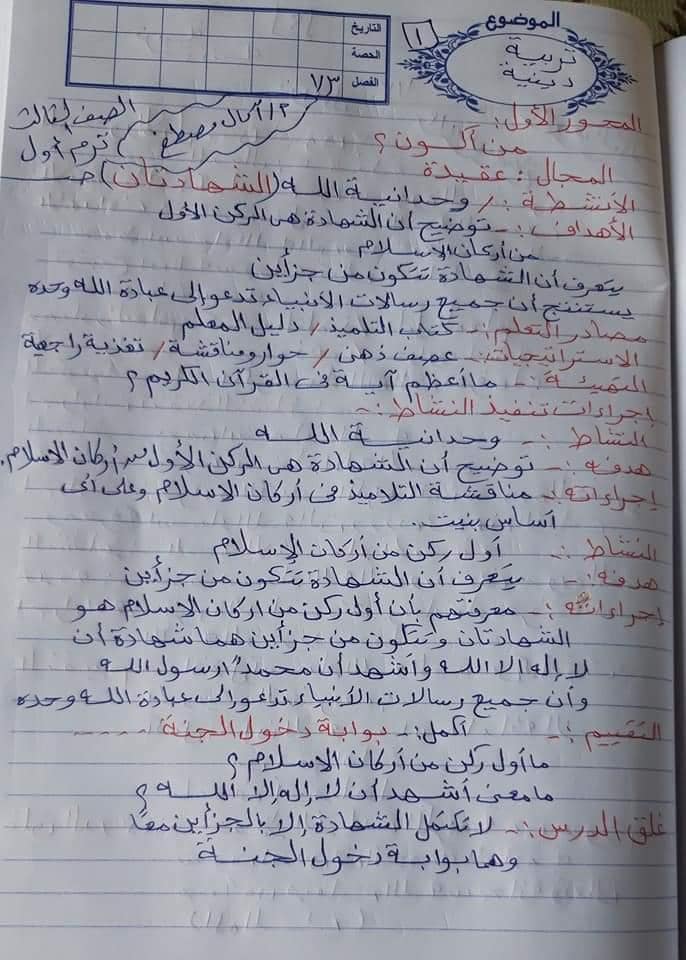 الموضوع
تربية
دينية
١
التاريخ
الحصة
الفصل
٧٣
الصف الثالث
ترم أول
أ/ آمال مصطفى
المحور الأول:
من أكون؟
المجال: عقيدة
الأنشطة:/ وحدانية الله (الشهادتان)
الأهداف:- توضيح أن الشهادة هى الركن الأول
من أركان الاسلام
يتعرف أن الشهادة تتكون من جزأين
يستنتج أن جميع رسالات الأنبياء تدعو إلى عبادة الله وحده
مصادر التعلم:- كتاب التلميذ/ دليل المعلم
الاستراتيجيات:- عصف ذهن/ حوار ومناقشة/ تغذية راجعة
التهيئة:- ما أعظم آية فى القرآن الكريم؟
إجراءات تنفيذ النشاط:-
النشاط:- وحدانية الله
هدفه:- توضيح أن الشهادة هى الركن الأول من أركان الاسلام.
إجراءاته:- مناقشة التلاميذ فى أركان الاسلام وعلى أى
أساس بنيت.
النشاط:- أول ركن من أركان الإسلام
هدفه:- يتعرف أن الشهادة تتكون من جزأين
إجراءاته:- معرفتهم بأن أول ركن من اركان الاسلام هو
الشهادتان وتتكون من جزأين هما شهادة أن
لا إله إلا الله وأشهد أن محمداً رسول الله
وأن جميع رسالات الأنبياء تدعو إلى عبادة الله وحده
التقييم:- أكمل:- بوابة دخول الجنة -----
ما أول ركن من أركان الاسلام؟
ما معنى أشهد أن لا إله إلا الله؟
غلق الدرس:- لا تكتمل الشهادة إلا بالجزأين معًا
وهما بوابة دخول الجنة